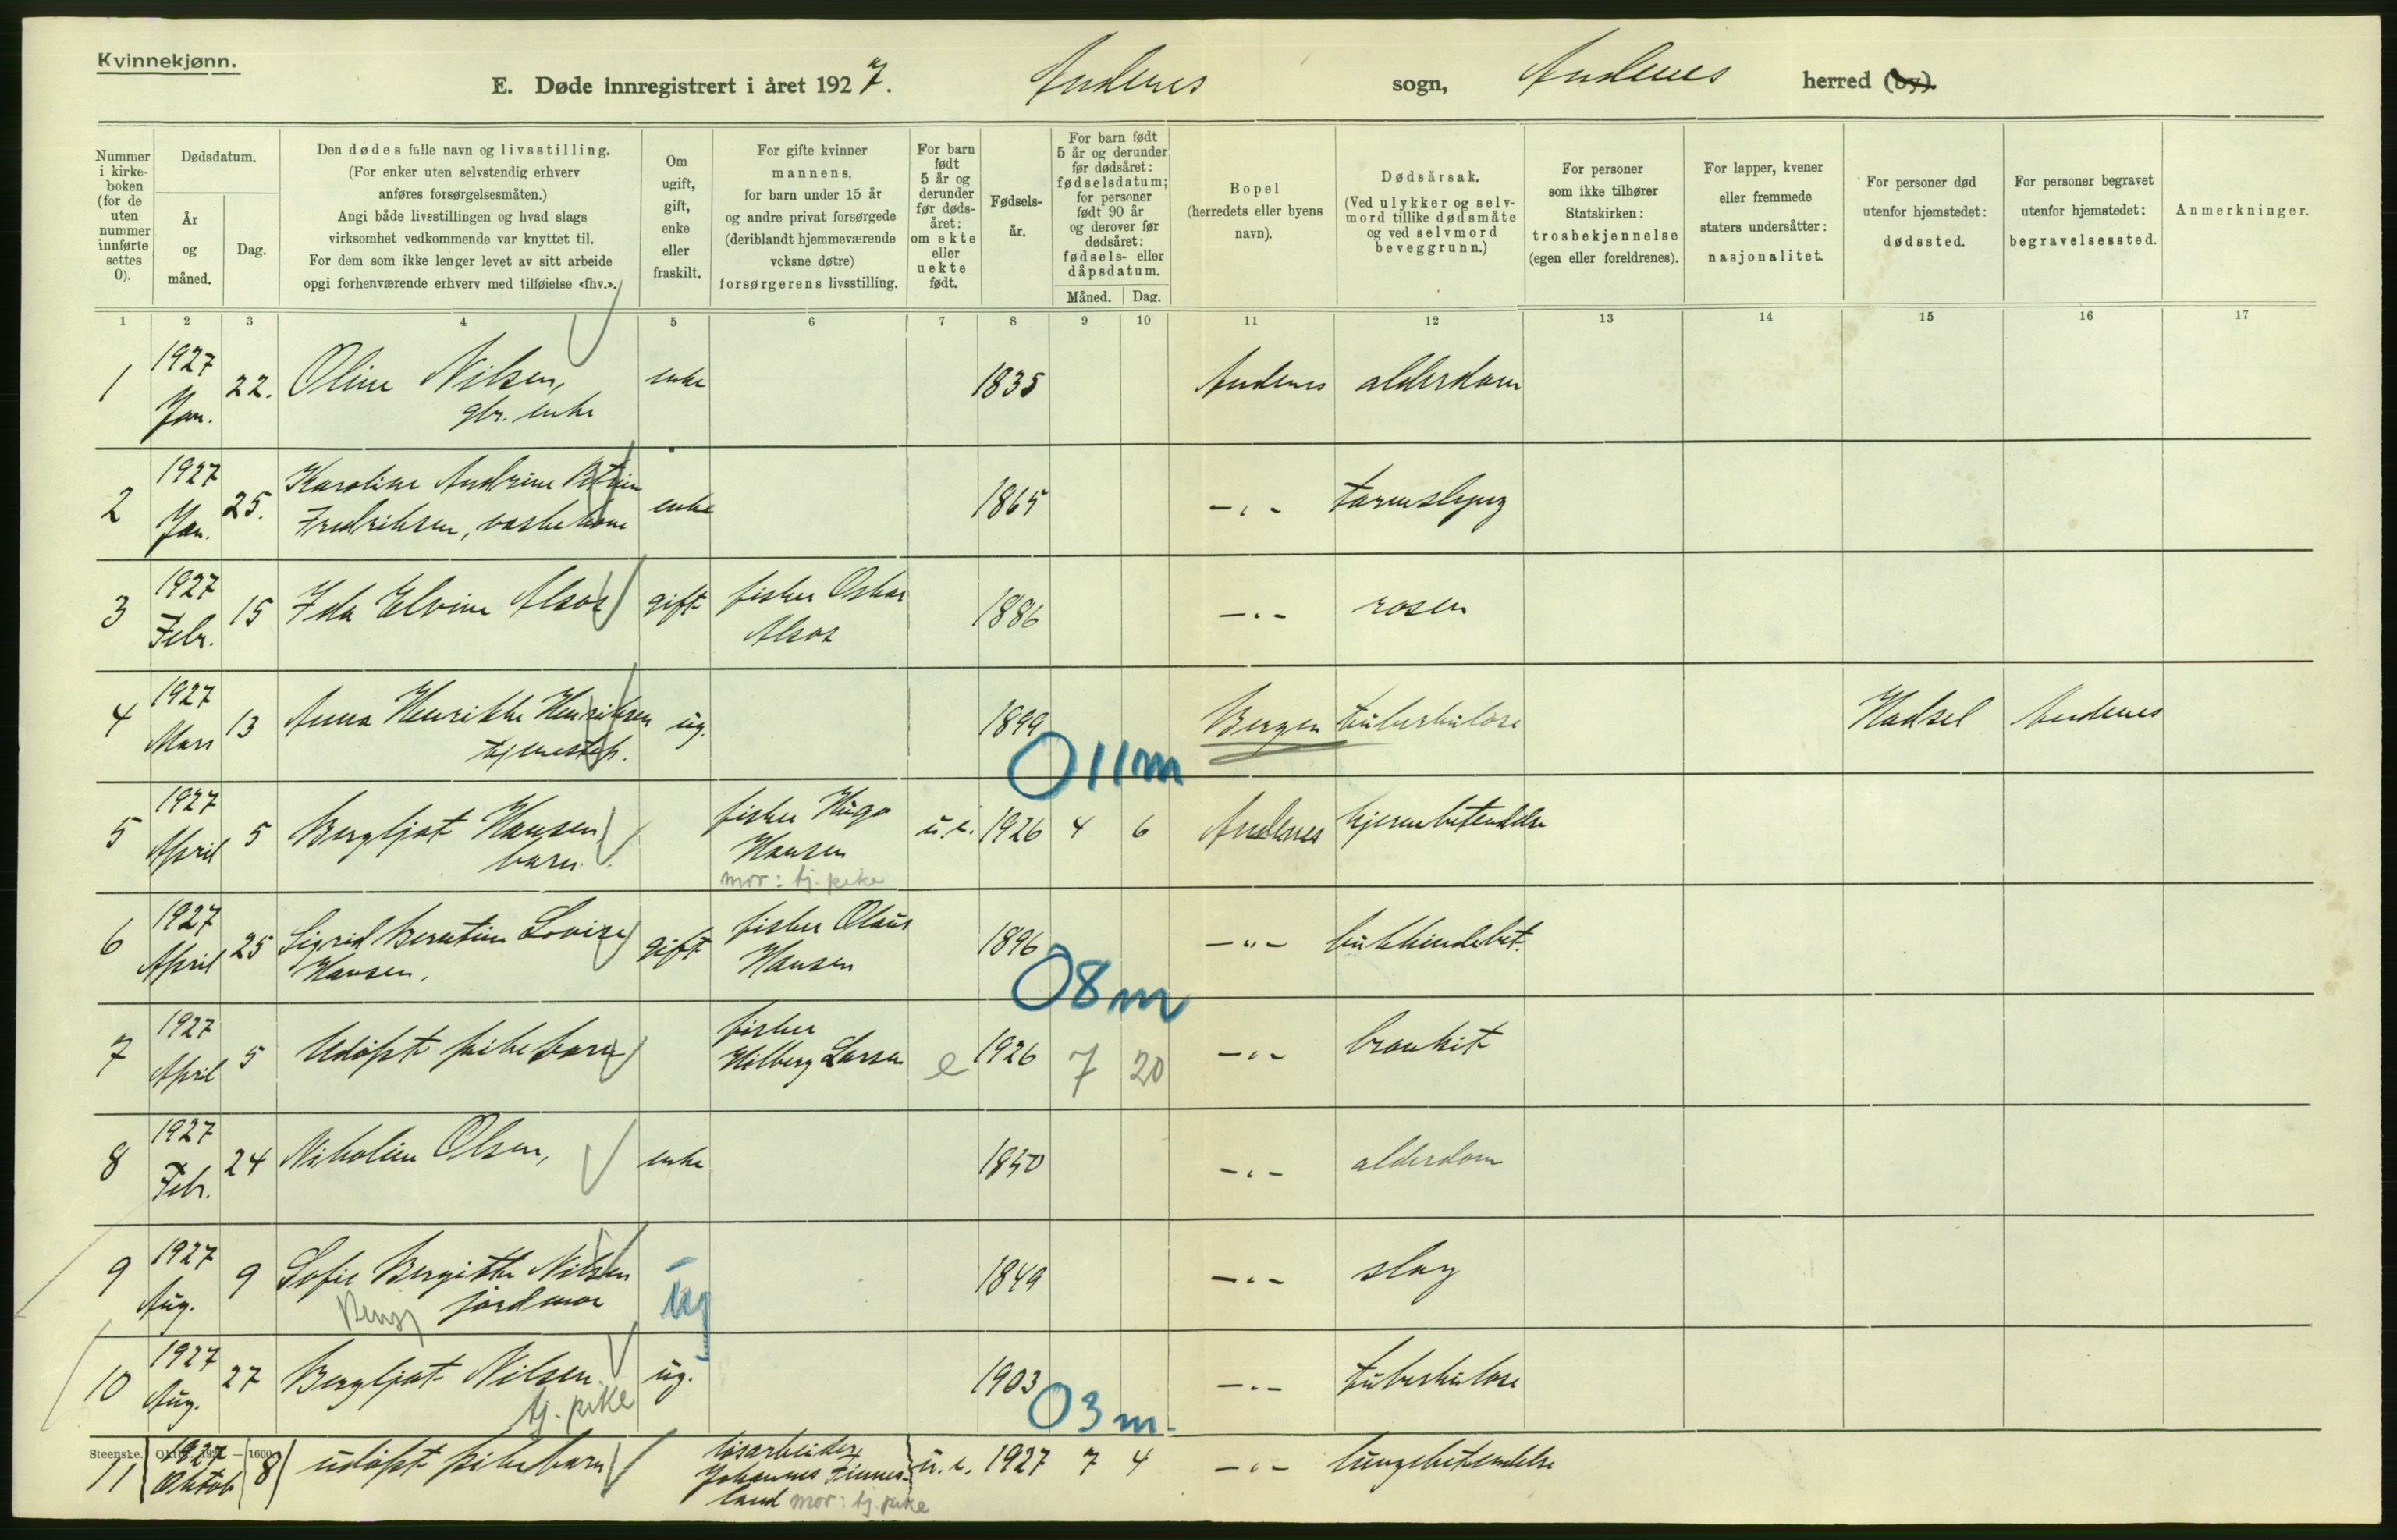 Kvinnekjønn.
E. Døde innregistrert i året 1927. Andenes sogn, Andenes herred (by).
Nummer i kirke-boken (for de uten nummer innførte settes 0).
Dødsdatum.
År og måned.
Dag.
Den dødes fulle navn og livsstilling.
(For enker uten selvstendig erhverv
anføres forsørgelsesmåten.)
Angi både livsstillingen og hvad slags
virksomhet vedkommende var knyttet til.
For dem som ikke lenger levet av sitt arbeide
opgi forhenværende erhverv med tilføielse «fhv.».
Om ugift, gift, enke eller fraskilt.
For gifte kvinner
mannens,
for barn under 15 år
og andre privat forsørgede
(deriblandt hjemmeværende
voksne døtre)
forsørgerens livsstilling.
For barn født 5 år og derunder før døds-året: om ekte eller uekte født.
Fødsels-år.
For barn født
5 år og derunder
før dødsåret:
fødselsdatum;
for personer
født 90 år
og derover før
dødsåret:
fødsels- eller
dåpsdatum.
Måned. Dag.
Bopel
(herredets eller byens
navn).
Dødsårsak.
(Ved ulykker og selv-
mord tillike dødsmåte
og ved selvmord
beveggrunn.)
For personer
som ikke tilhører
Statskirken:
trosbekjennelse
(egen eller foreldrenes).
For lapper, kvener
eller fremmede
staters undersåtter:
nasjonalitet.
For personer død
utenfor hjemstedet:
dødssted.
For personer begravet
utenfor hjemstedet:
begravelsessted.
Anmerkninger.
1 2 3 4 5 6 7 8 9 10 11 12 13 14 15 16 17
1 1927 Jan. 22. Oline Nilsen, enke 1835 Andenes alderdom
gbr. enke
2 1927 Jan. 25. Karoline Andrine enke 1865 -"- tarmslyng
Fredriksen, vaskekone
3 1927 Febr. 15 Ida Elvine Alsos gift fisker Oskar Alsos 1886 -"- rosen
4 1927 Mars 13 Anna Henrikke Henriksen ug. 1899 Bergen tuberkulose Hadsel Andenes
011m
5 1927 April 5 Bergljot Hansen, barn. fisker Hugo Hansen u.e. 1926 4 6 Andenes hjernebetendelse
mor: tj. pike
6 1927 April 25 Sigrid Berntine Lovise Hansen, gift fisker Olaus Hansen 1896 -"- bukhindebet.
08m
7 1927 April 5 Udøpt pikebarn fisker Hilberg Larsen e 1926 7 20 -"- bronkit
8 1927 Febr. 24 Nikoline Olsen, enke 1850 -"- alderdom
9 1927 Aug. 9 Sofie Bergitte Nilsen ug 1849 -"- slag
pens. jordmor
10 1927 Aug. 27 Bergljot Nilsen. ug. 1903 -"- tuberkulose
tj. pike
03m.
Steenske. 1600
11 1927 Oktob 8 udøpt pikebarn løsarbeider Johannes Finnes-land u.e. 1927 7 4 -"- lungebetendelse
mor: tj. pike